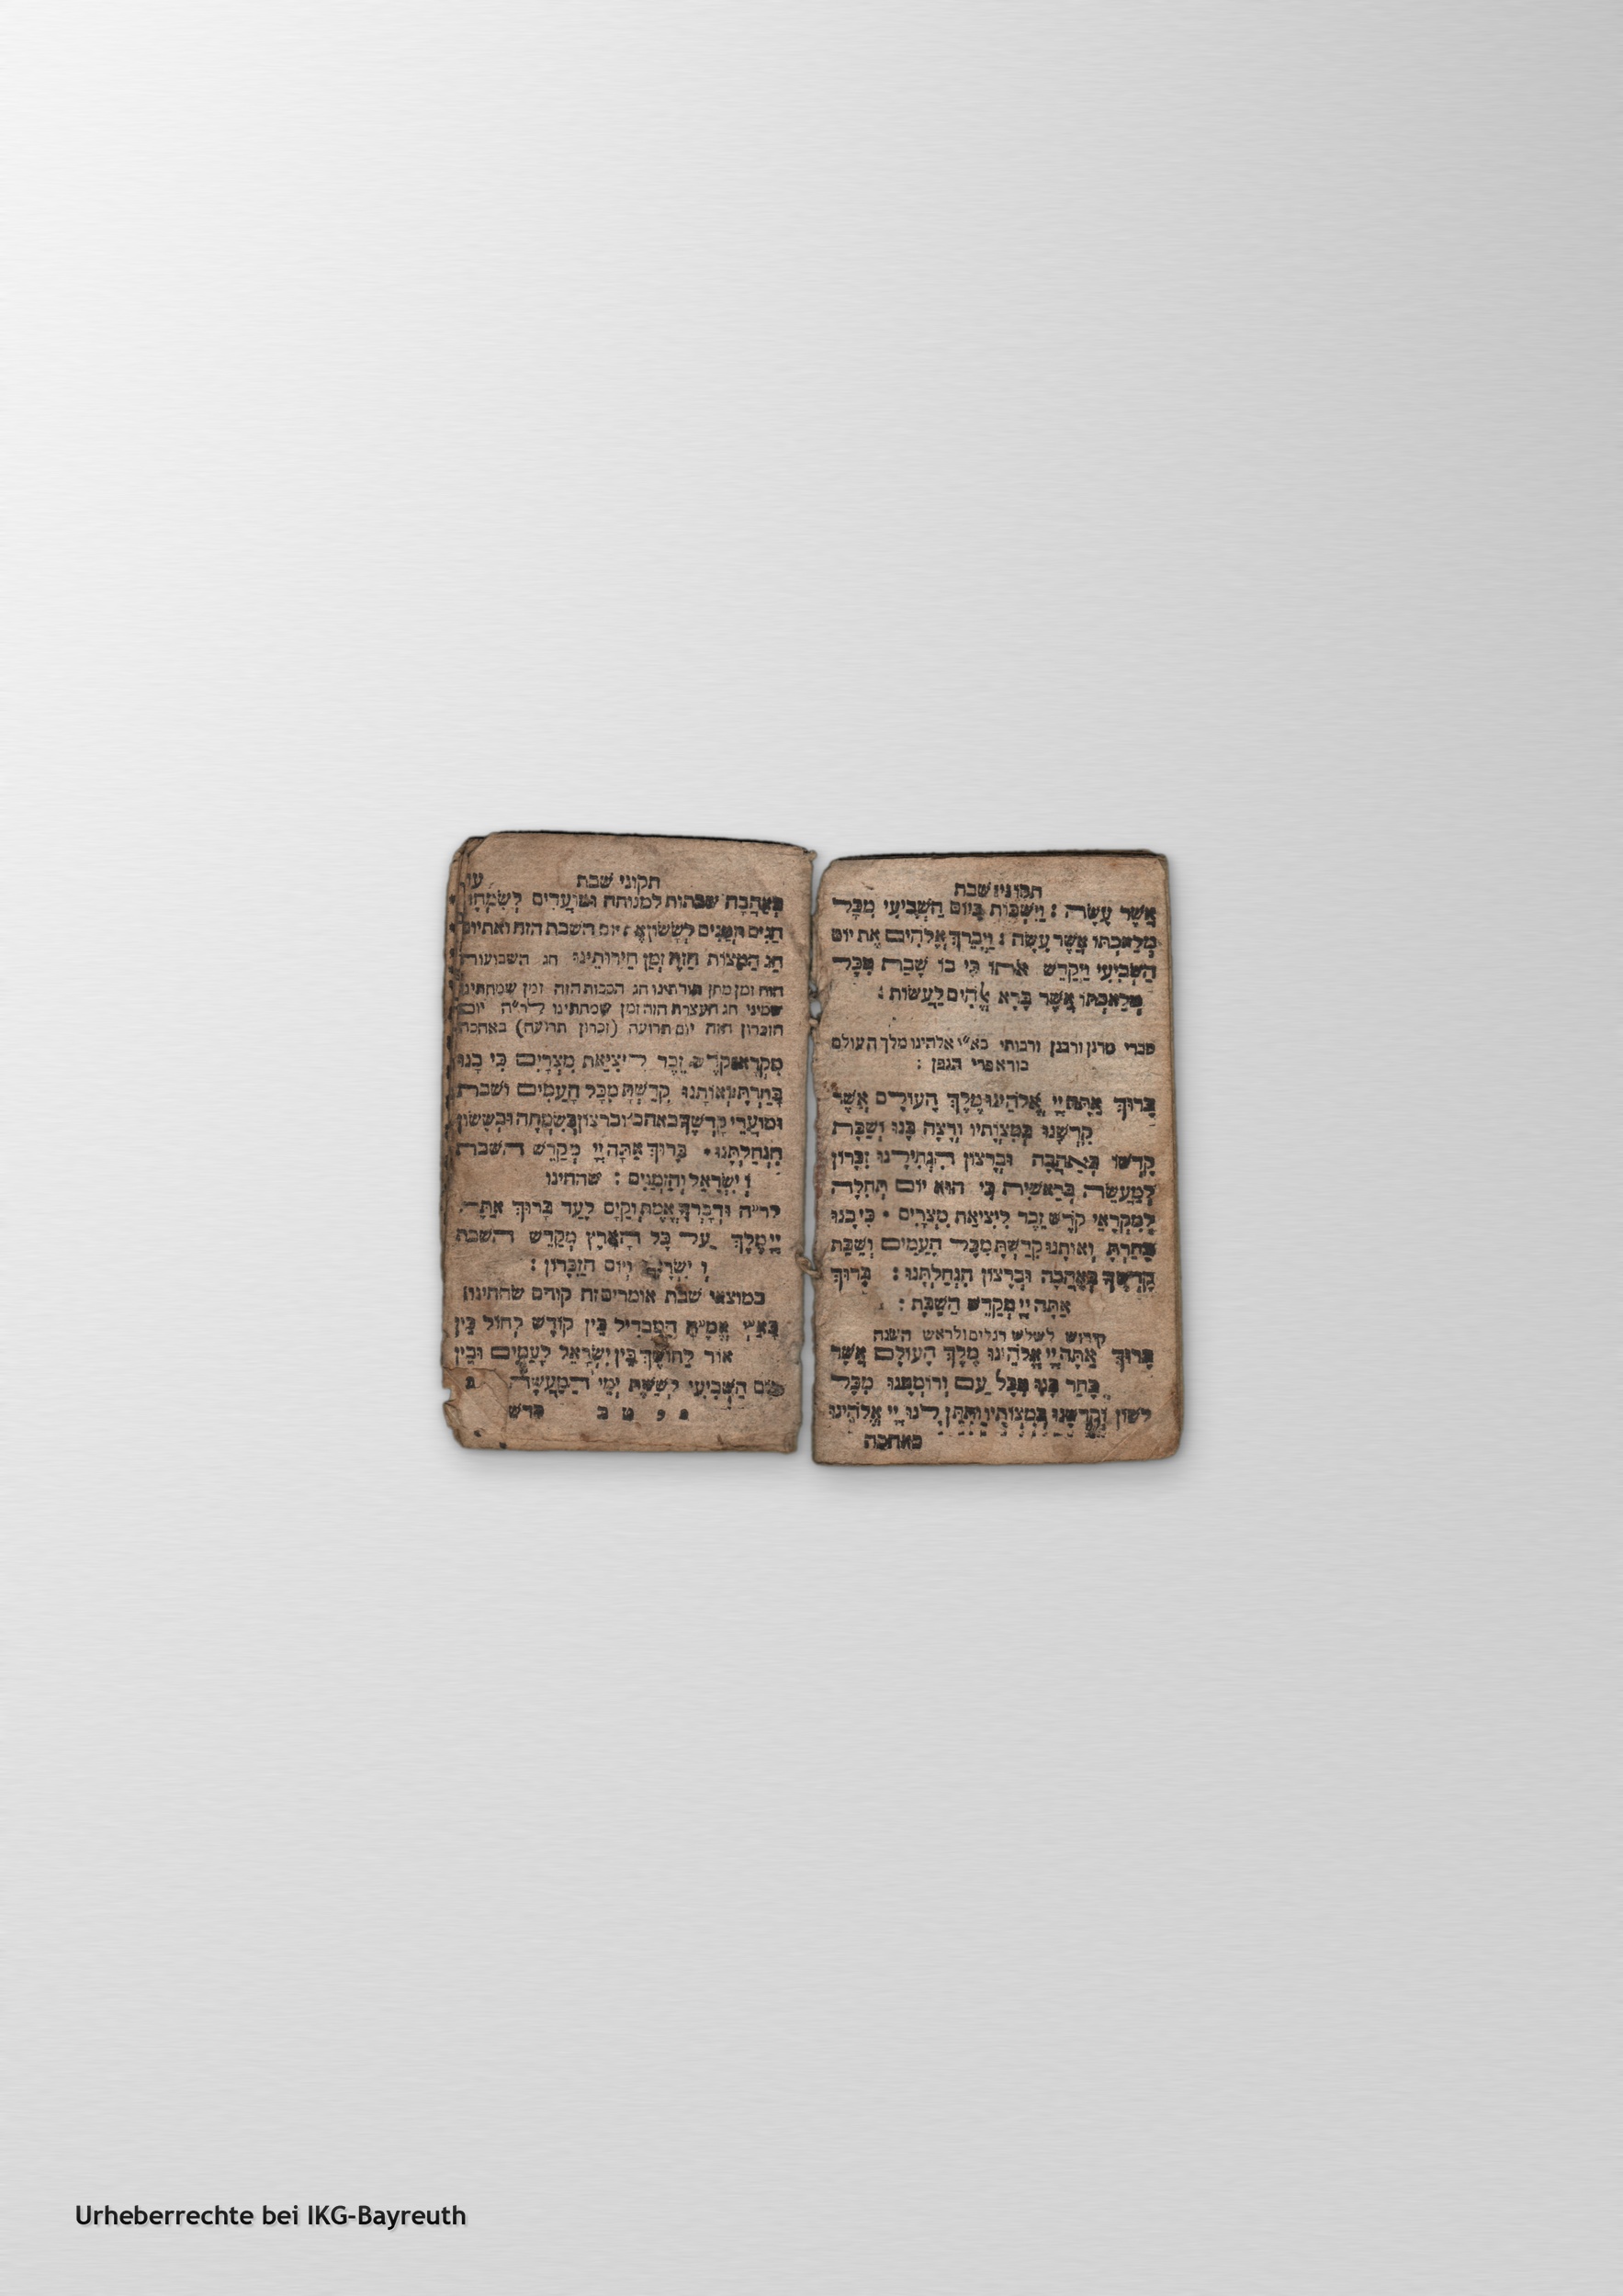 תקוני שבת
אֲשֶׁר עָשָׂה : וַיִּשְׁבּוֹת בַּיּוֹם הַשְּׁבִיעִי מִכָּל
מְלַאכְתּוֹ אֲשֶׁר עָשָׂה : וַיְבָרֶךְ אֱלֹהִים אֶת יוֹם
הַשְּׁבִיעִי וַיְקַדֵּשׁ אֹתוֹ כִּי בוֹ שָׁבַת מִכָּל
מְלַאכְתּוֹ אֲשֶׁר בָּרָא אֱלֹהִים לַעֲשׂוֹת :
סברי מרנן ורבנן ורבותי בא״י אלהינו מלך העולם
בורא פרי הגפן :
בָּרוּךְ אַתָּה יְיָ אֱלֹהֵינוּ מֶלֶךְ הָעוֹלָם אֲשֶׁר
קִדְּשָׁנוּ בְּמִצְוֹתָיו וְרָצָה בָּנוּ וְשַׁבָּת
קָדְשׁוֹ בְּאַהֲבָה וּבְרָצוֹן הִנְחִילָנוּ זִכָּרוֹן
לְמַעֲשֵׂה בְרֵאשִׁית כִּי הוּא יוֹם תְּחִלָּה
לְמִקְרָאֵי קֹדֶשׁ זֵכֶר לִיצִיאַת מִצְרָיִם • כִּי בָנוּ
בָחַרְתָּ וְאוֹתָנוּ קִדַּשְׁתָּ מִכָּל הָעַמִּים וְשַׁבַּת
קָדְשְׁךָ בְּאַהֲבָה וּבְרָצוֹן הִנְחַלְתָּנוּ : בָּרוּךְ
אַתָּה יְיָ מְקַדֵּשׁ הַשַּׁבָּת :
קידוש לשלש רגלים ולראש השנה
בָּרוּךְ אַתָּה יְיָ אֱלֹהֵינוּ מֶלֶךְ הָעוֹלָם אֲשֶׁר
בָּחַר בָּנוּ מִכָּל עַם וְרוֹמְמָנוּ מִכָּל
לָשׁוֹן וְקִדְּשָׁנוּ בְּמִצְוֹתָיו וַתִּתֶּן לָנוּ יְיָ אֱלֹהֵינוּ
באהבה
תקוני שבת עו
בְּאַהֲבָה שבתות למנוחה וּמוֹעֲדִים לְשִׂמְחָה
חַגִּים וּזְמַנִּים לְשָׂשׂוֹן אֶת יום השבת הזה ואת יום
חַג הַמַּצּוֹת הַזֶּה זְמַן חֵירוּתֵינוּ חג השבועות
הזה זמן מתן תורתינו חג הסכות הזה זמן שמחתינו
שמיני חג העצרת הזה זמן שמחתינו לר״ה יום
הזכרון הזה יום תרועה (זכרון תרועה) באהבה
מִקְרָא קֹדֶשׁ זֵכֶר לִיצִיאַת מִצְרָיִם כִּי בָנוּ
בָחַרְתָּ וְאוֹתָנוּ קִדַּשְׁתָּ מִכָּל הָעַמִּים ושבת
וּמוֹעֲדֵי קָדְשְׁךָ באהבה וברצון בְּשִׂמְחָה וּבְשָׂשׂוֹן
הִנְחַלְתָּנוּ • בָּרוּךְ אַתָּה יְיָ מְקַדֵּשׁ השבת
וְ יִשְׂרָאֵל וְהַזְּמַנִּים : שהחינו
לר״ה וּדְבָרְךָ אֱמֶת וְקַיָּם לָעַד בָּרוּךְ אַתָּה
יְיָ מֶלֶךְ עַל כָּל הָאָרֶץ מְקַדֵּשׁ השבת
וְ יִשְׂרָאֵל וְיוֹם הַזִּכָּרוֹן :
במוצאי שבת אומרים זה קודם שהחינו
בא״י אמ״ה הַמַּבְדִּיל בֵּין קוֹדֶשׁ לְחוֹל בֵּין
אוֹר לְחוֹשֶׁךְ בֵּין יִשְׂרָאֵל לָעַמִּים וּבֵין
יוֹם הַשְּׁבִיעִי לְשֵׁשֶׁת יְמֵי הַמַּעֲשֶׂה
קדש
Urheberrechte bei IKG-Bayreuth